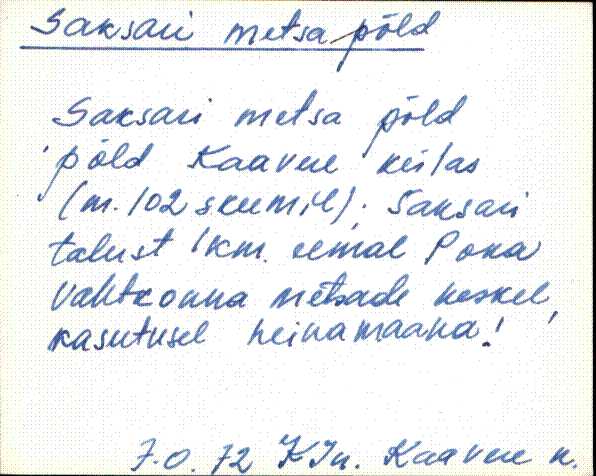 Saksari metsa põld
Saksari metsa põld
põld Kaavere külas
(m. 102 skeemil). Saksari
talust 1km. eemal Pona
vahtkonna metsade keskel,
kasutusel heinamaana!
7.0.72 KJn. Kaavere k.